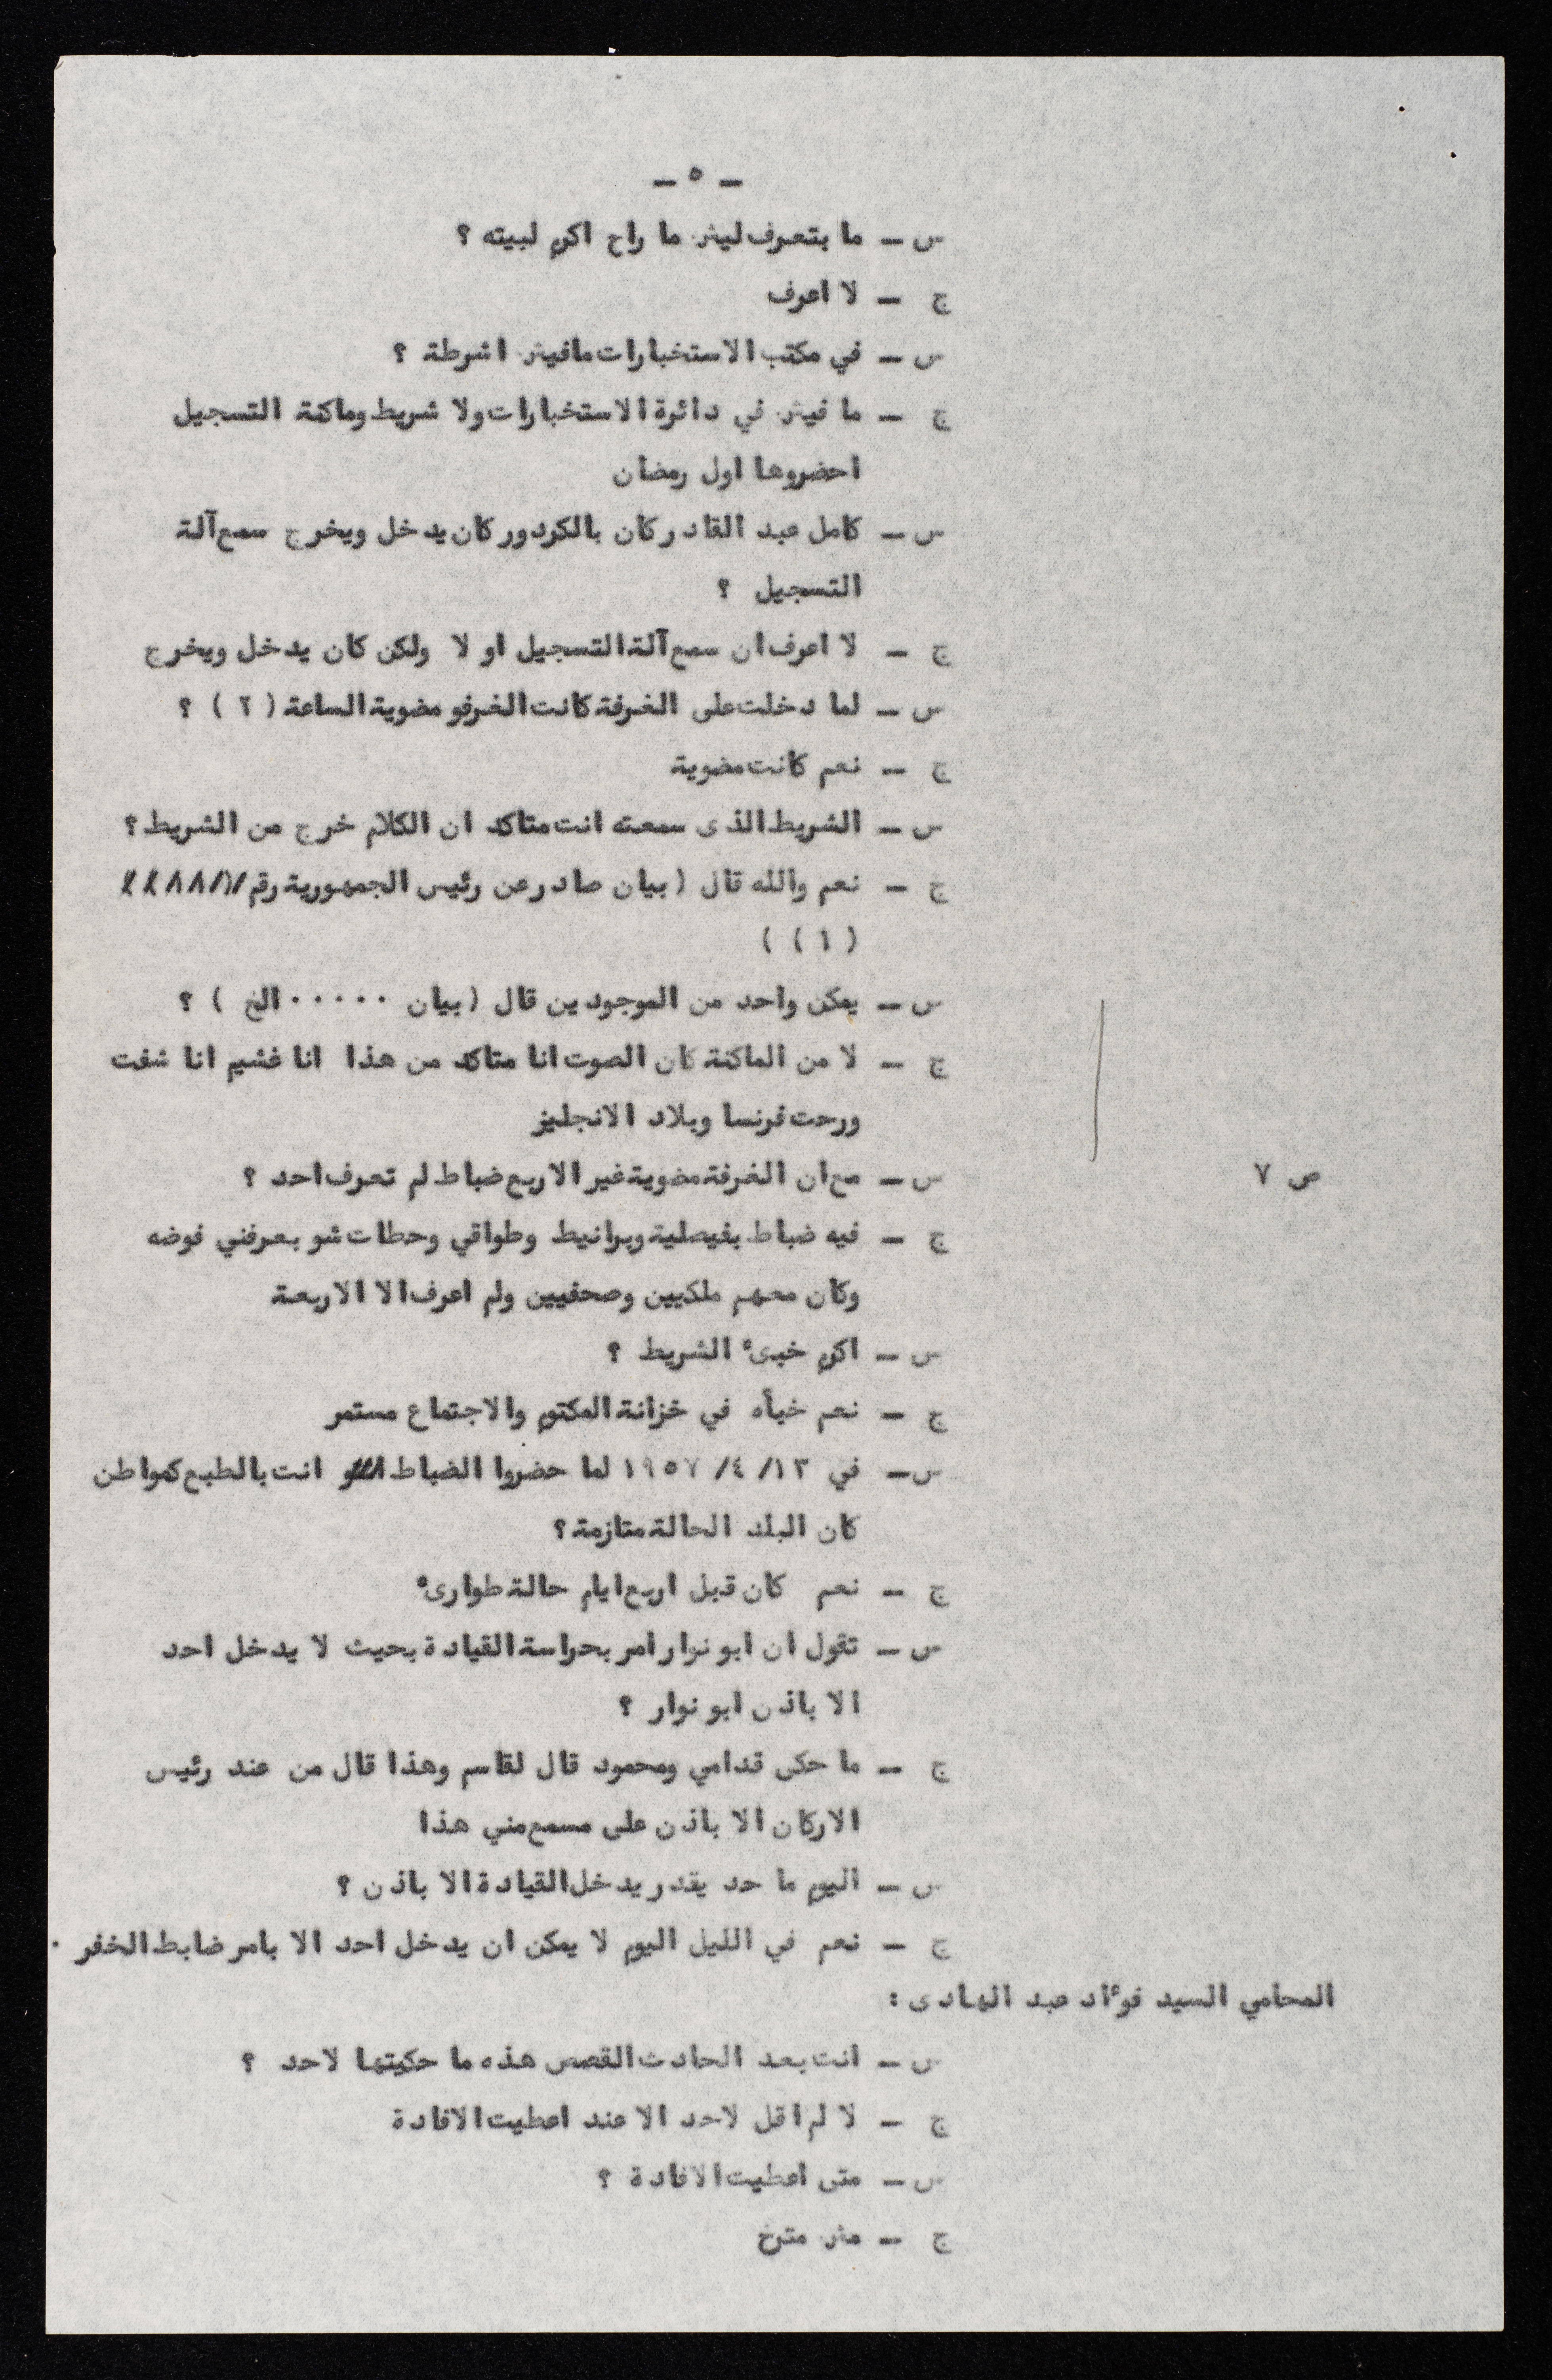 — ٥ —
س — ما بتعرف ليش ما راح اكرم لبيته ؟
ج — لا اعرف
س — في مكتب الاستخبارات مافيش اشرطة ؟
ج — ما فيش في دائرة الاستخبارات ولا شريط وماكنة التسجيل
احضروها اول رمضان
س — كامل عبد القادر كان بالكردور كان يدخل ويخرج سمع آلة
التسجيل ؟
ج — لا اعرف ان سمع آلة التسجيل او لا ولكن كان يدخل ويخرج
س — لما دخلت على الغرفة كانت الغرفو مضوية الساعة ( ٢ ) ؟
ج — نعم كانت مضوية
س — الشريط الذى سمعته انت متاكد ان الكلام خرج من الشريط ؟
ج — نعم والله قال ( بيان صادر عن رئيس الجمهورية رقم
( ١ ) )
س — يمكن واحد من الموجودين قال ( بيان ٠٠٠٠٠ الخ ) ؟
ج — لا من الماكنة كان الصوت انا متاكد من هذا انا غشيم انا شفت
ورحت فرنسا وبلاد الانجليز
ص ٧
س — مع ان الغرفة مضوية غير الاربع ضباط لم تعرف احد ؟
ج — فيه ضباط بفيصلية وبرانيط وطواقي وحطات شو بعرفني فوضه
وكان معهم ملكيين وصحفيين ولم اعرف الا الاربعة
س — اكرم خبىء الشريط ؟
ج — نعم خبأه في خزانة المكتوم والاجتماع مستمر
س — في ١٣/ ٤/ ١٩٥٧ لما حضروا الضباط انت بالطبع كمواطن
كان البلد الحالة متازمة ؟
ج — نعم كان قبل اربع ايام حالة طوارىء
س — تقول ان ابو نوار امر بحراسة القيادة بحيث لا يدخل احد
الا باذن ابو نوار ؟
ج — ما حكى قدامي ومحمود قال لقاسم وهذا قال من عند رئيس
الاركان الا باذن على مسمع مني هذا
س — اليوم ما حد يقدر يدخل القيادة الا باذن ؟
ج — نعم في الليل اليوم لا يمكن ان يدخل احد الا بامر ضابط الخفر ٠
المحامي السيد فوءاد عبد الهادى :
س — انت بعد الحادث القصص هذه ما حكيتها لاحد ؟
ج — لا لم اقل لاحد الا عند اعطيت الافادة
س — متى اعطيت الافادة ؟
ج — مش مترخ